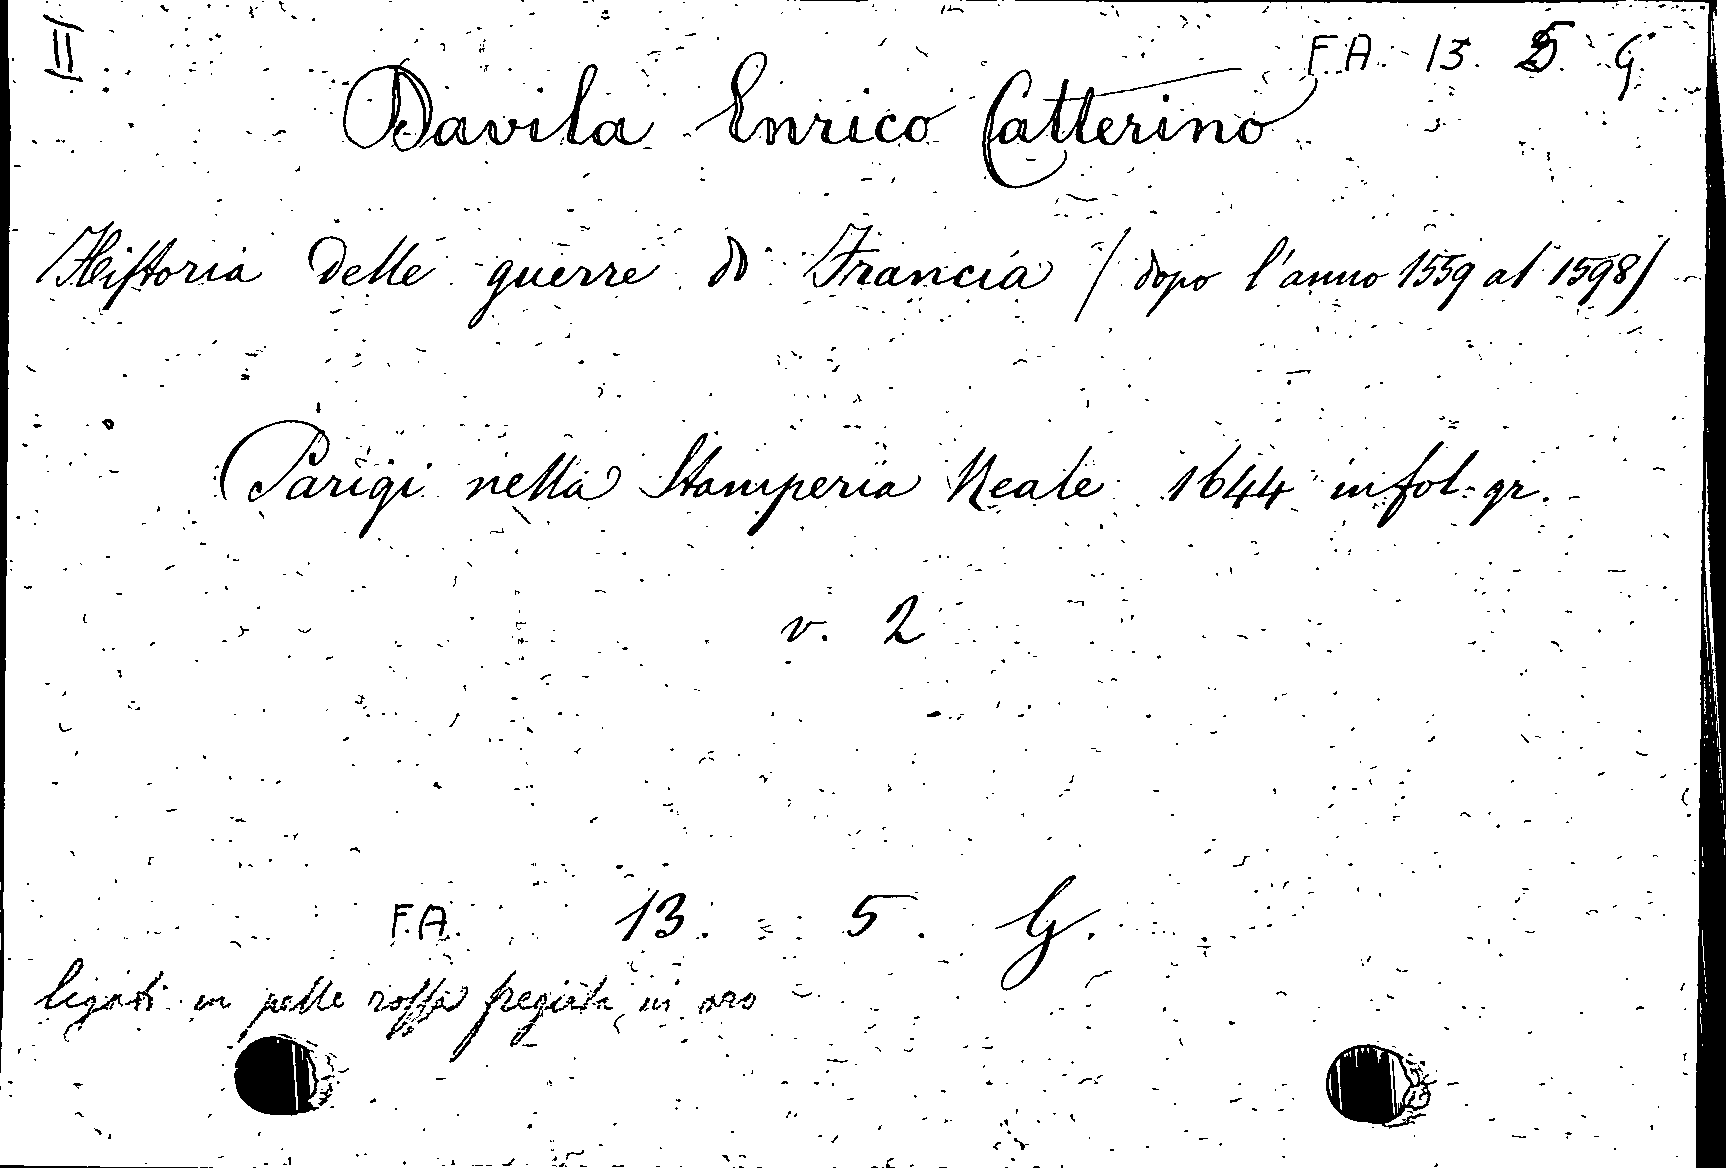 II
F.A. 13. 5. G.
Davila Enrico Catterino
Historia delle guerre di Francia (dopo l'anno 1559 al 1598)
Parigi nella Stamperia Reale 1644 in fol. gr.
v. 2
F.A. 13. 5. G.
ligati in pelle rossa fregiata in oro